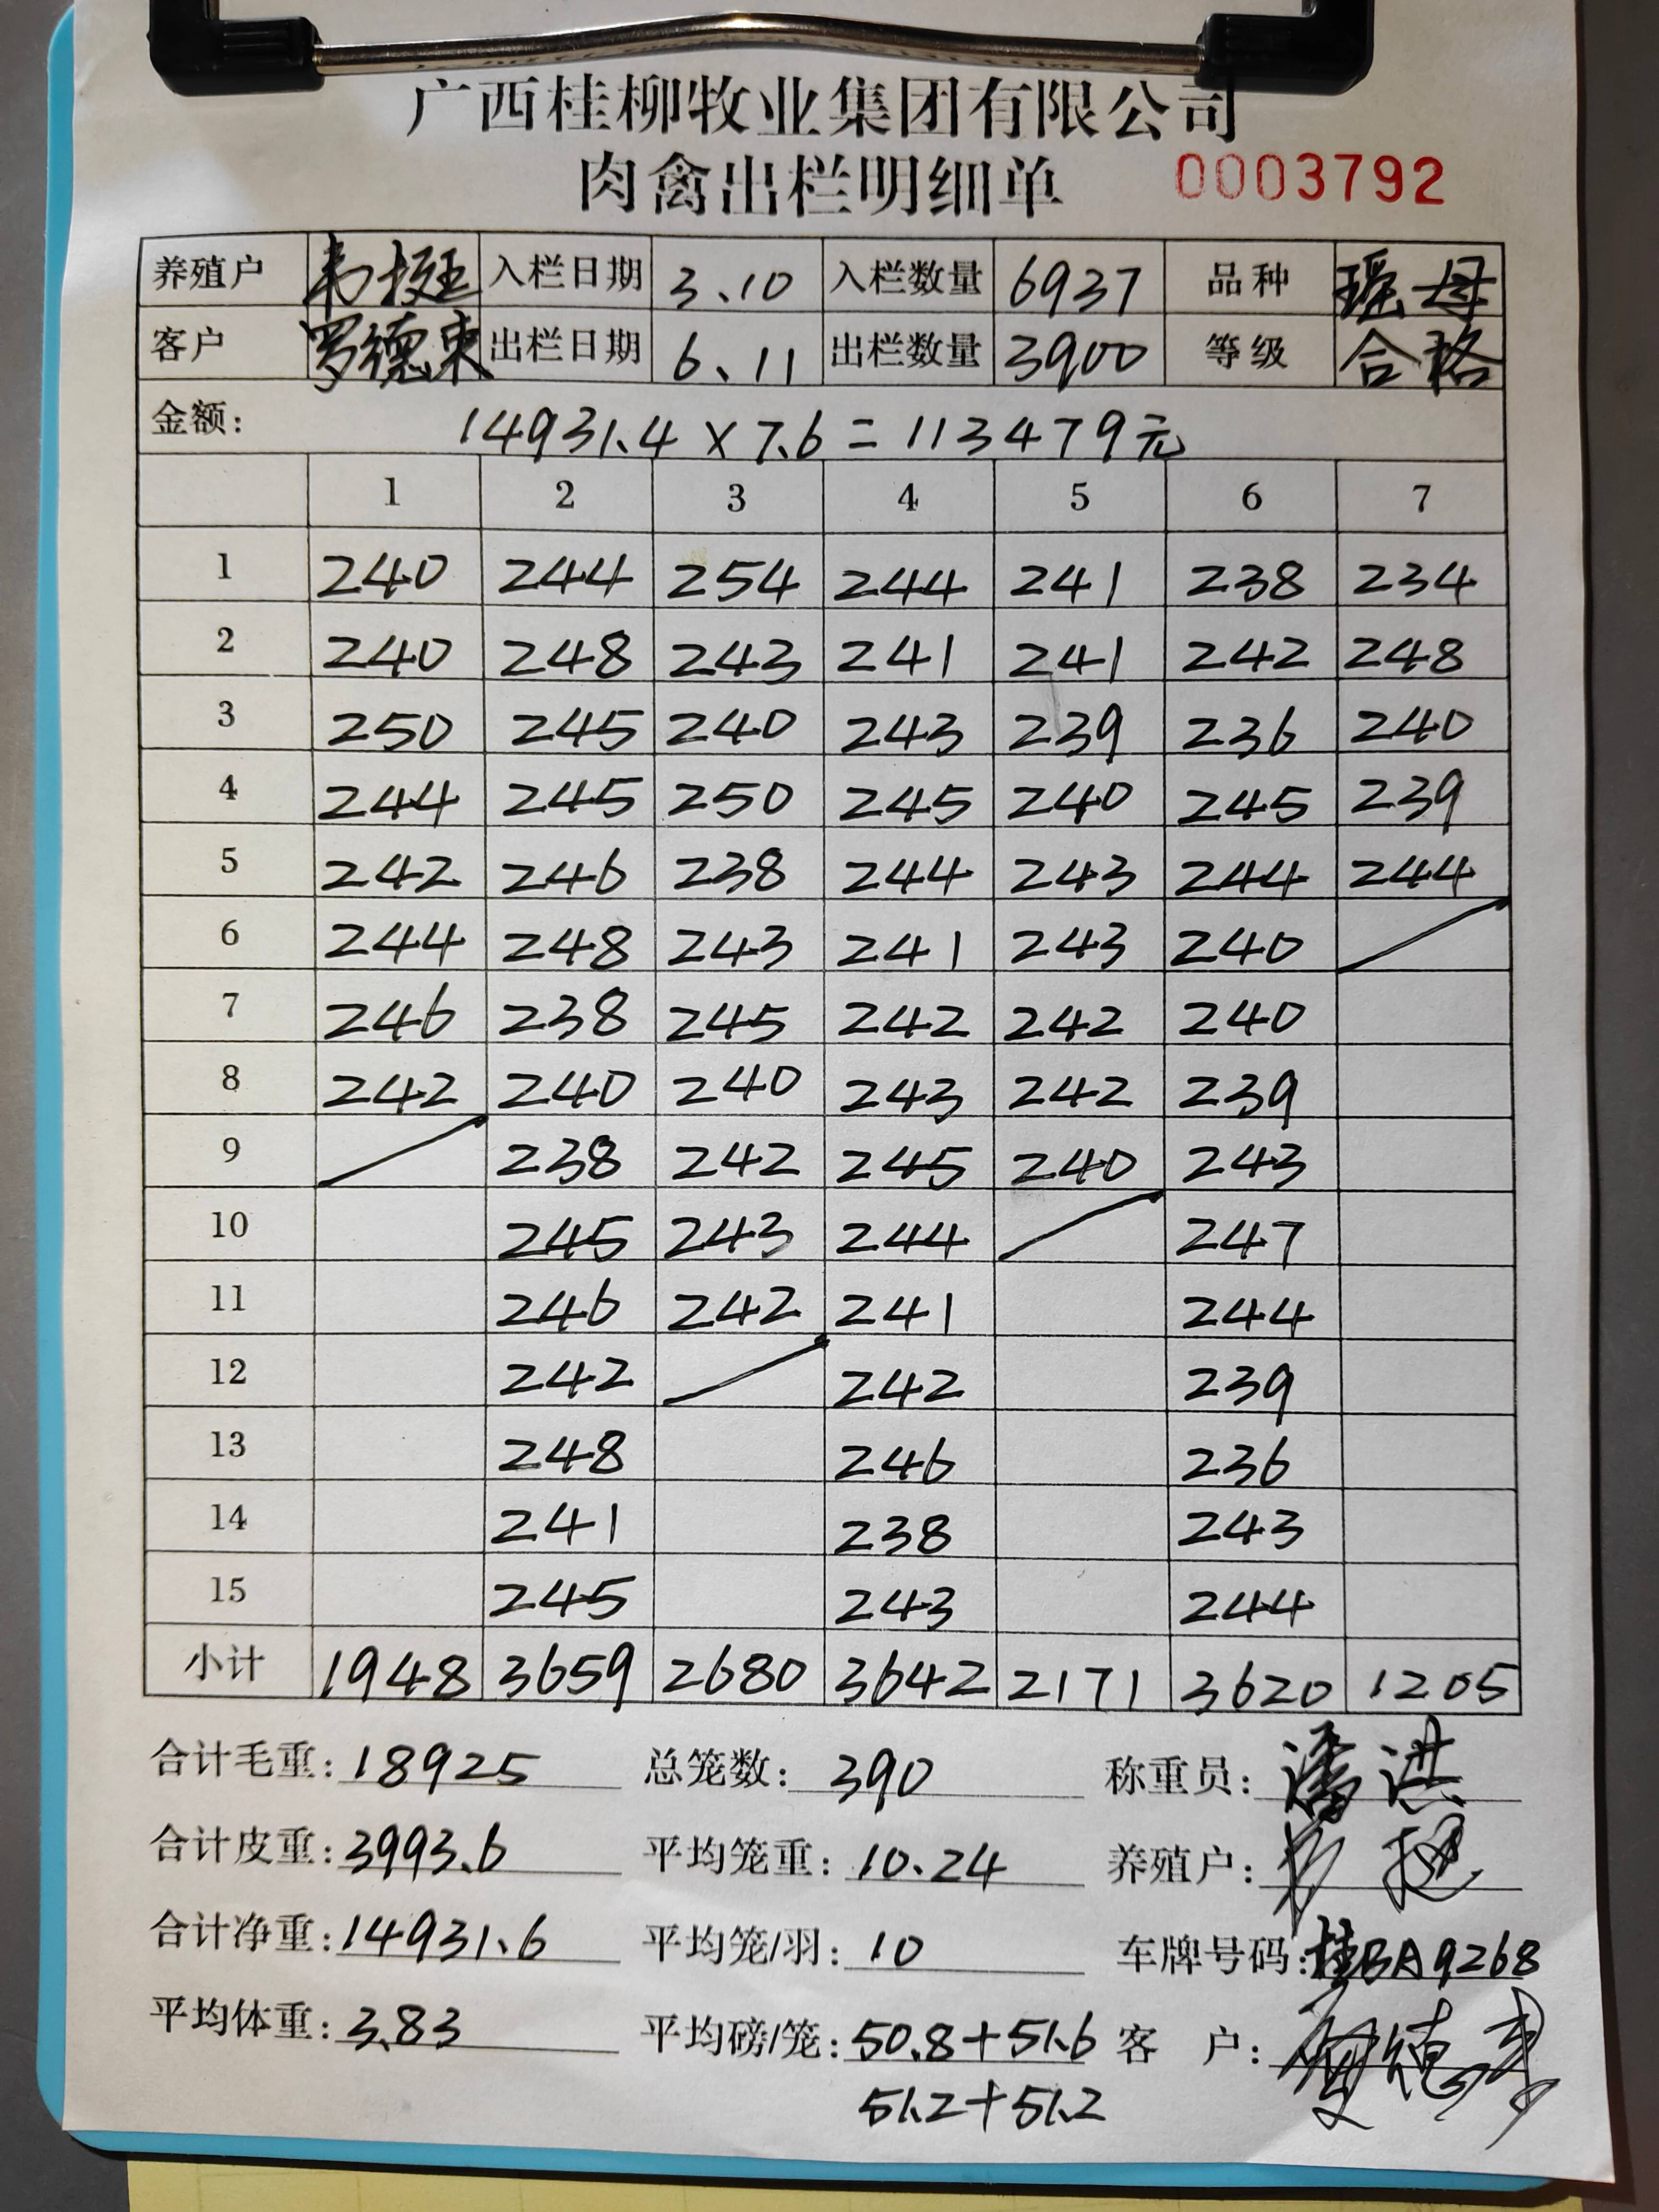 广西桂柳牧业集团有限公司
肉禽出栏明细单 0003792
养殖户 韦挺 入栏日期 3.10 入栏数量 6937 品种 瑶母
客户 罗德东 出栏日期 6.11 出栏数量 3900 等级 合格
金额: 14931.4×7.6=113479元
1 2 3 4 5 6 7
1 240 244 254 244 241 238 234
2 240 248 243 241 241 242 248
3 250 245 240 243 239 236 240
4 244 245 250 245 240 245 239
5 242 246 238 244 243 244 244
6 244 248 243 241 243 240
7 246 238 245 242 242 240
8 242 240 240 243 242 239
9 238 242 245 240 243
10 245 243 244 247
11 246 242 241 244
12 242 242 239
13 248 246 236
14 241 238 243
15 245 243 244
小计 1948 3659 2680 3642 2171 3620 1205
合计毛重: 18925 总笼数: 390 称重员: 潘洪
合计皮重: 3993.6 平均笼重: 10.24 养殖户:
合计净重: 14931.6 平均笼/羽: 10 车牌号码: 桂BA9268
平均体重: 3.83 平均磅/笼: 50.8+51.6 客 户:
51.2+51.2